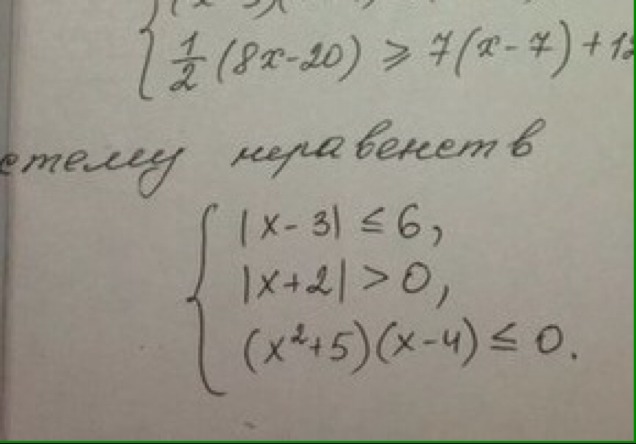 1/2 (8x-20) ⩾ 7(x-7)+12
стему неравенств
|x-3| ≤ 6,
|x+2| > 0,
(x²+5)(x-4) ≤ 0.